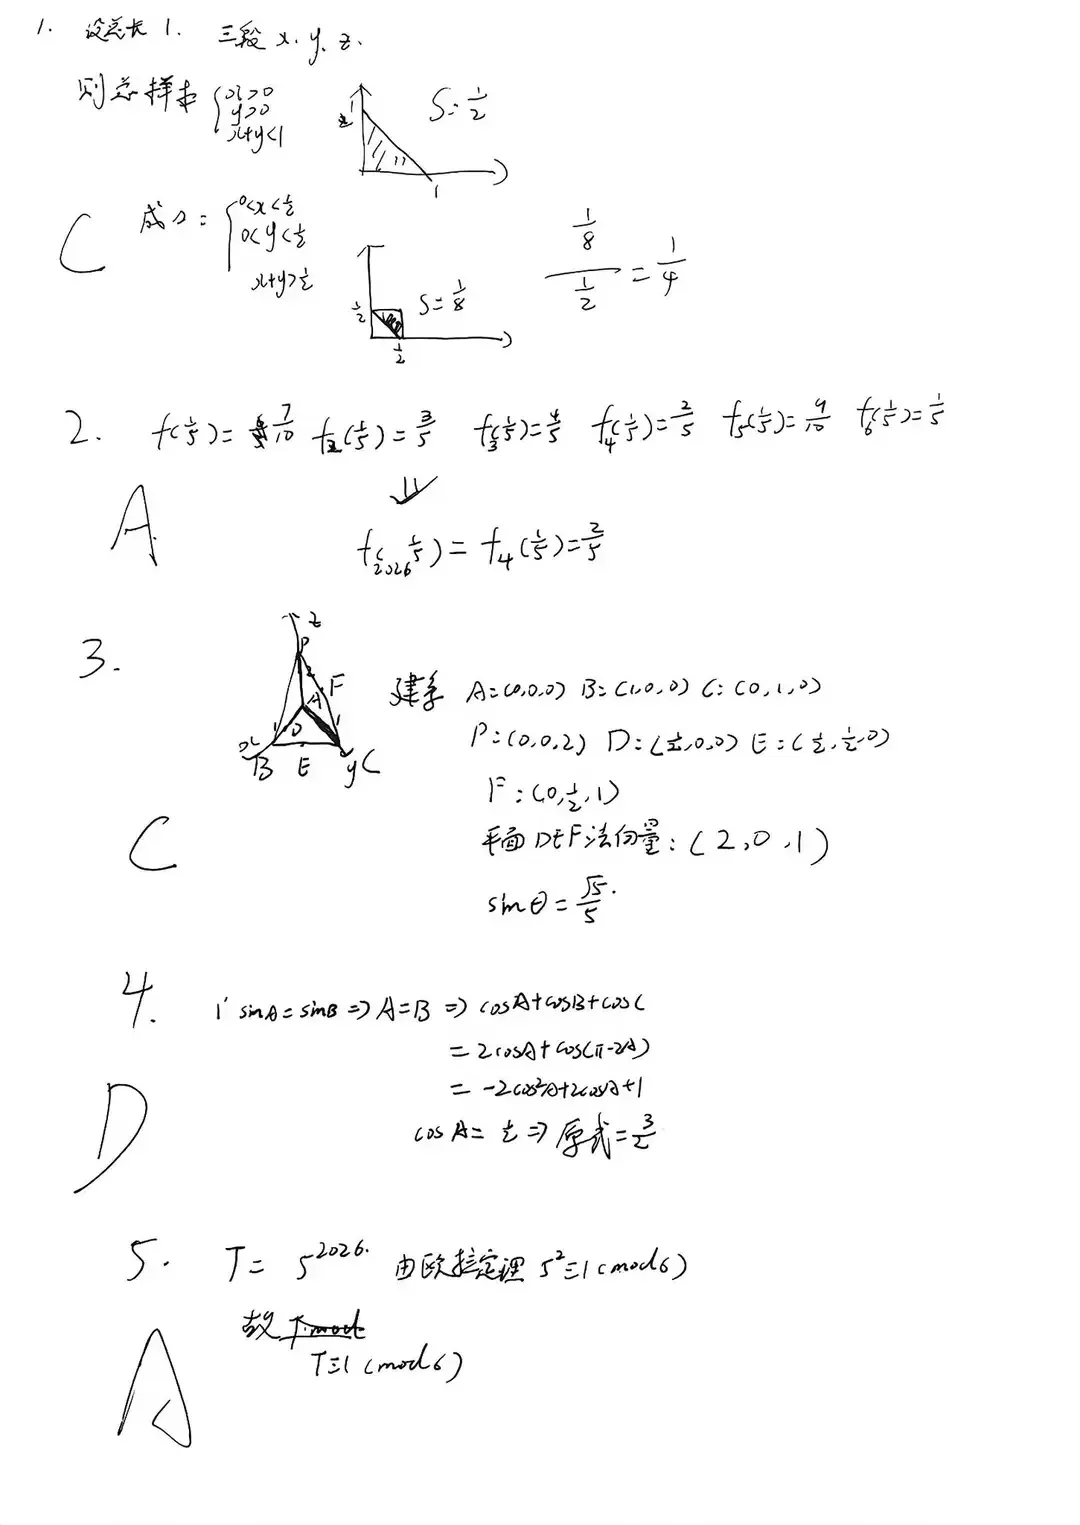 1. 设总长 1. 三段 x. y. z.
则总样本 { x>0
y>0
x+y<1
1
1
S=1/2
C
成功: { 0<x<1/2
0<y<1/2
x+y>1/2
1/2
1/2
S=1/8
(1/8)/(1/2) = 1/4
2. f(1/5)=7/10 f₂(1/5)=3/5 f₃(1/5)=4/5 f₄(1/5)=2/5 f₅(1/5)=9/10 f₆(1/5)=1/5
⇓
A
f₂₀₂₆(1/5)=f₄(1/5)=2/5
3.
z
P
2
F
A
D
1
1
x
B
E
y
C
建系 A:(0,0,0) B:(1,0,0) C:(0,1,0)
P:(0,0,2) D:(1/2,0,0) E:(1/2,1/2,0)
F:(0,1/2,1)
C
平面DEF法向量:(2,0,1)
sinθ=√5/5.
4. 1' sinA=sinB⇒A=B⇒cosA+cosB+cosC
=2cosA+cos(π-2A)
=-2cos²A+2cosA+1
cosA=1/2⇒原式=3/2
D
5. T= 5^2026. 由欧拉定理 5²≡1(mod6)
故 T mod
T≡1(mod6)
A